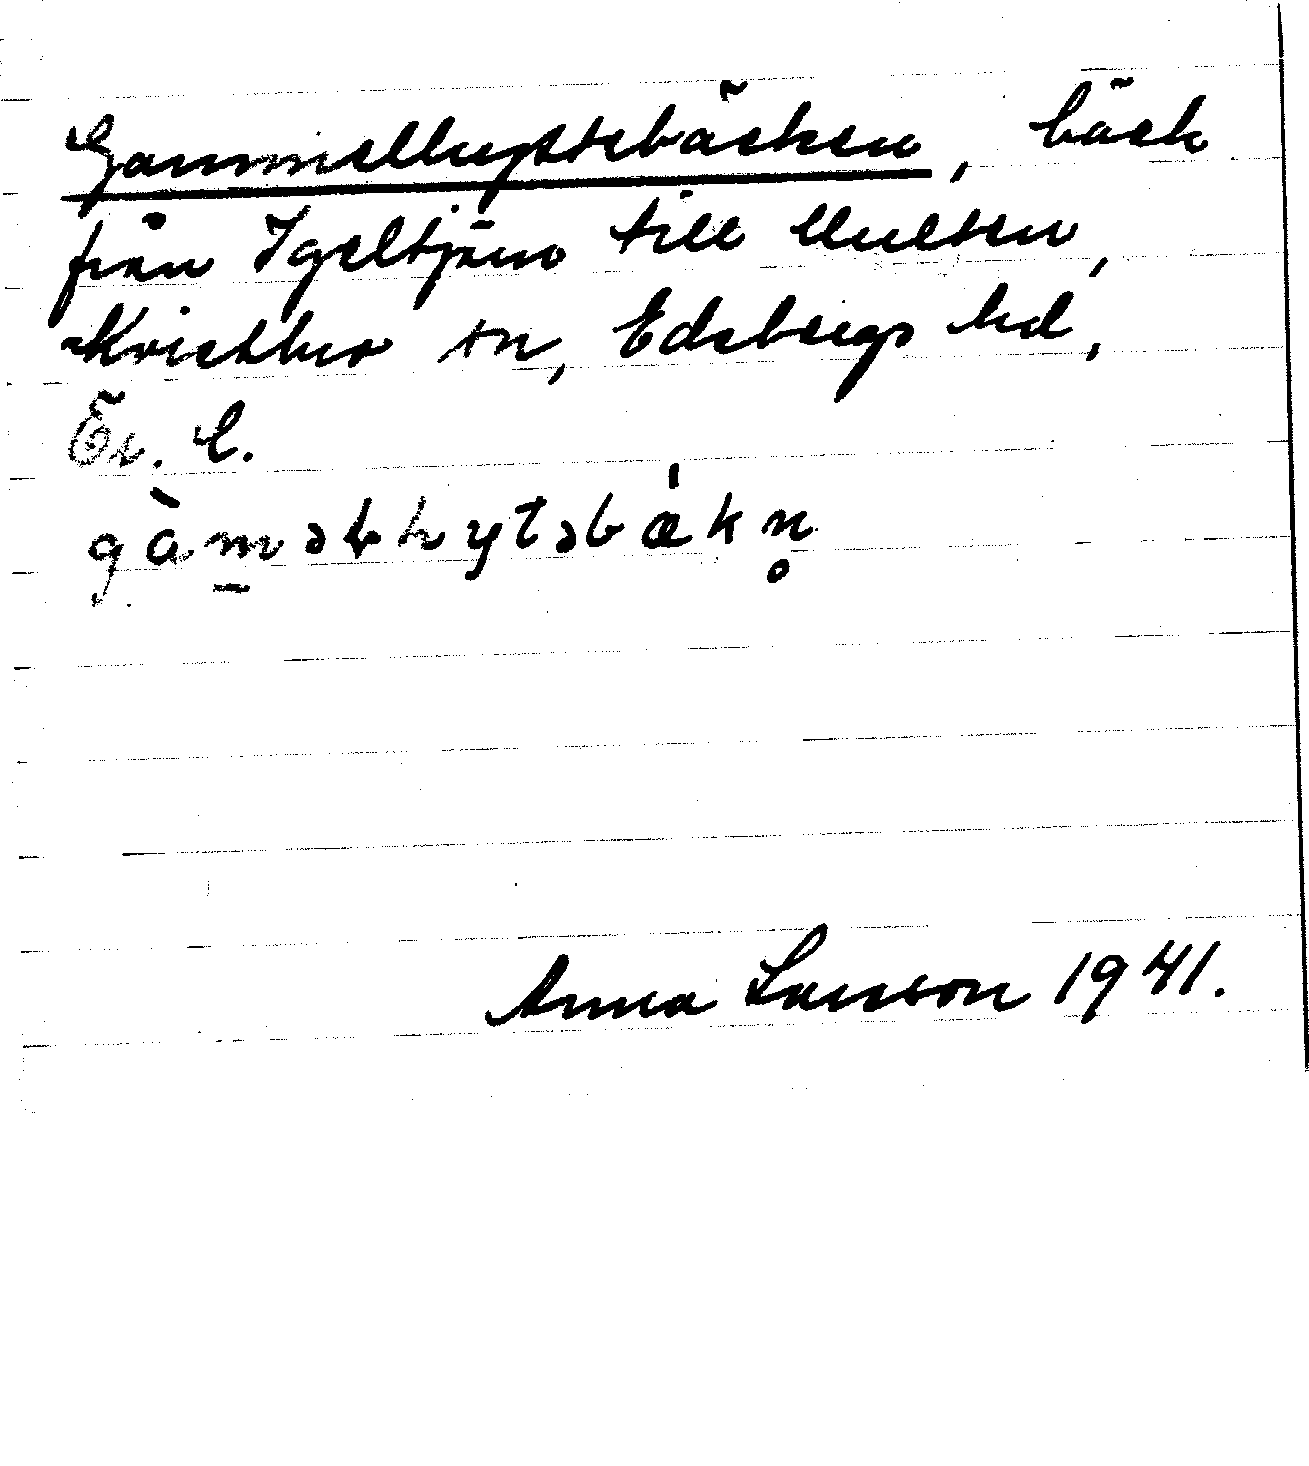 Gammelhyttebäcken, bäck
från Igeltjärn till Multen,
Kvistbro sn, Edsbergs hd,
Ör. l.
gàm̲əɫhytəbǽkn̥
Anna Larsson 1941.